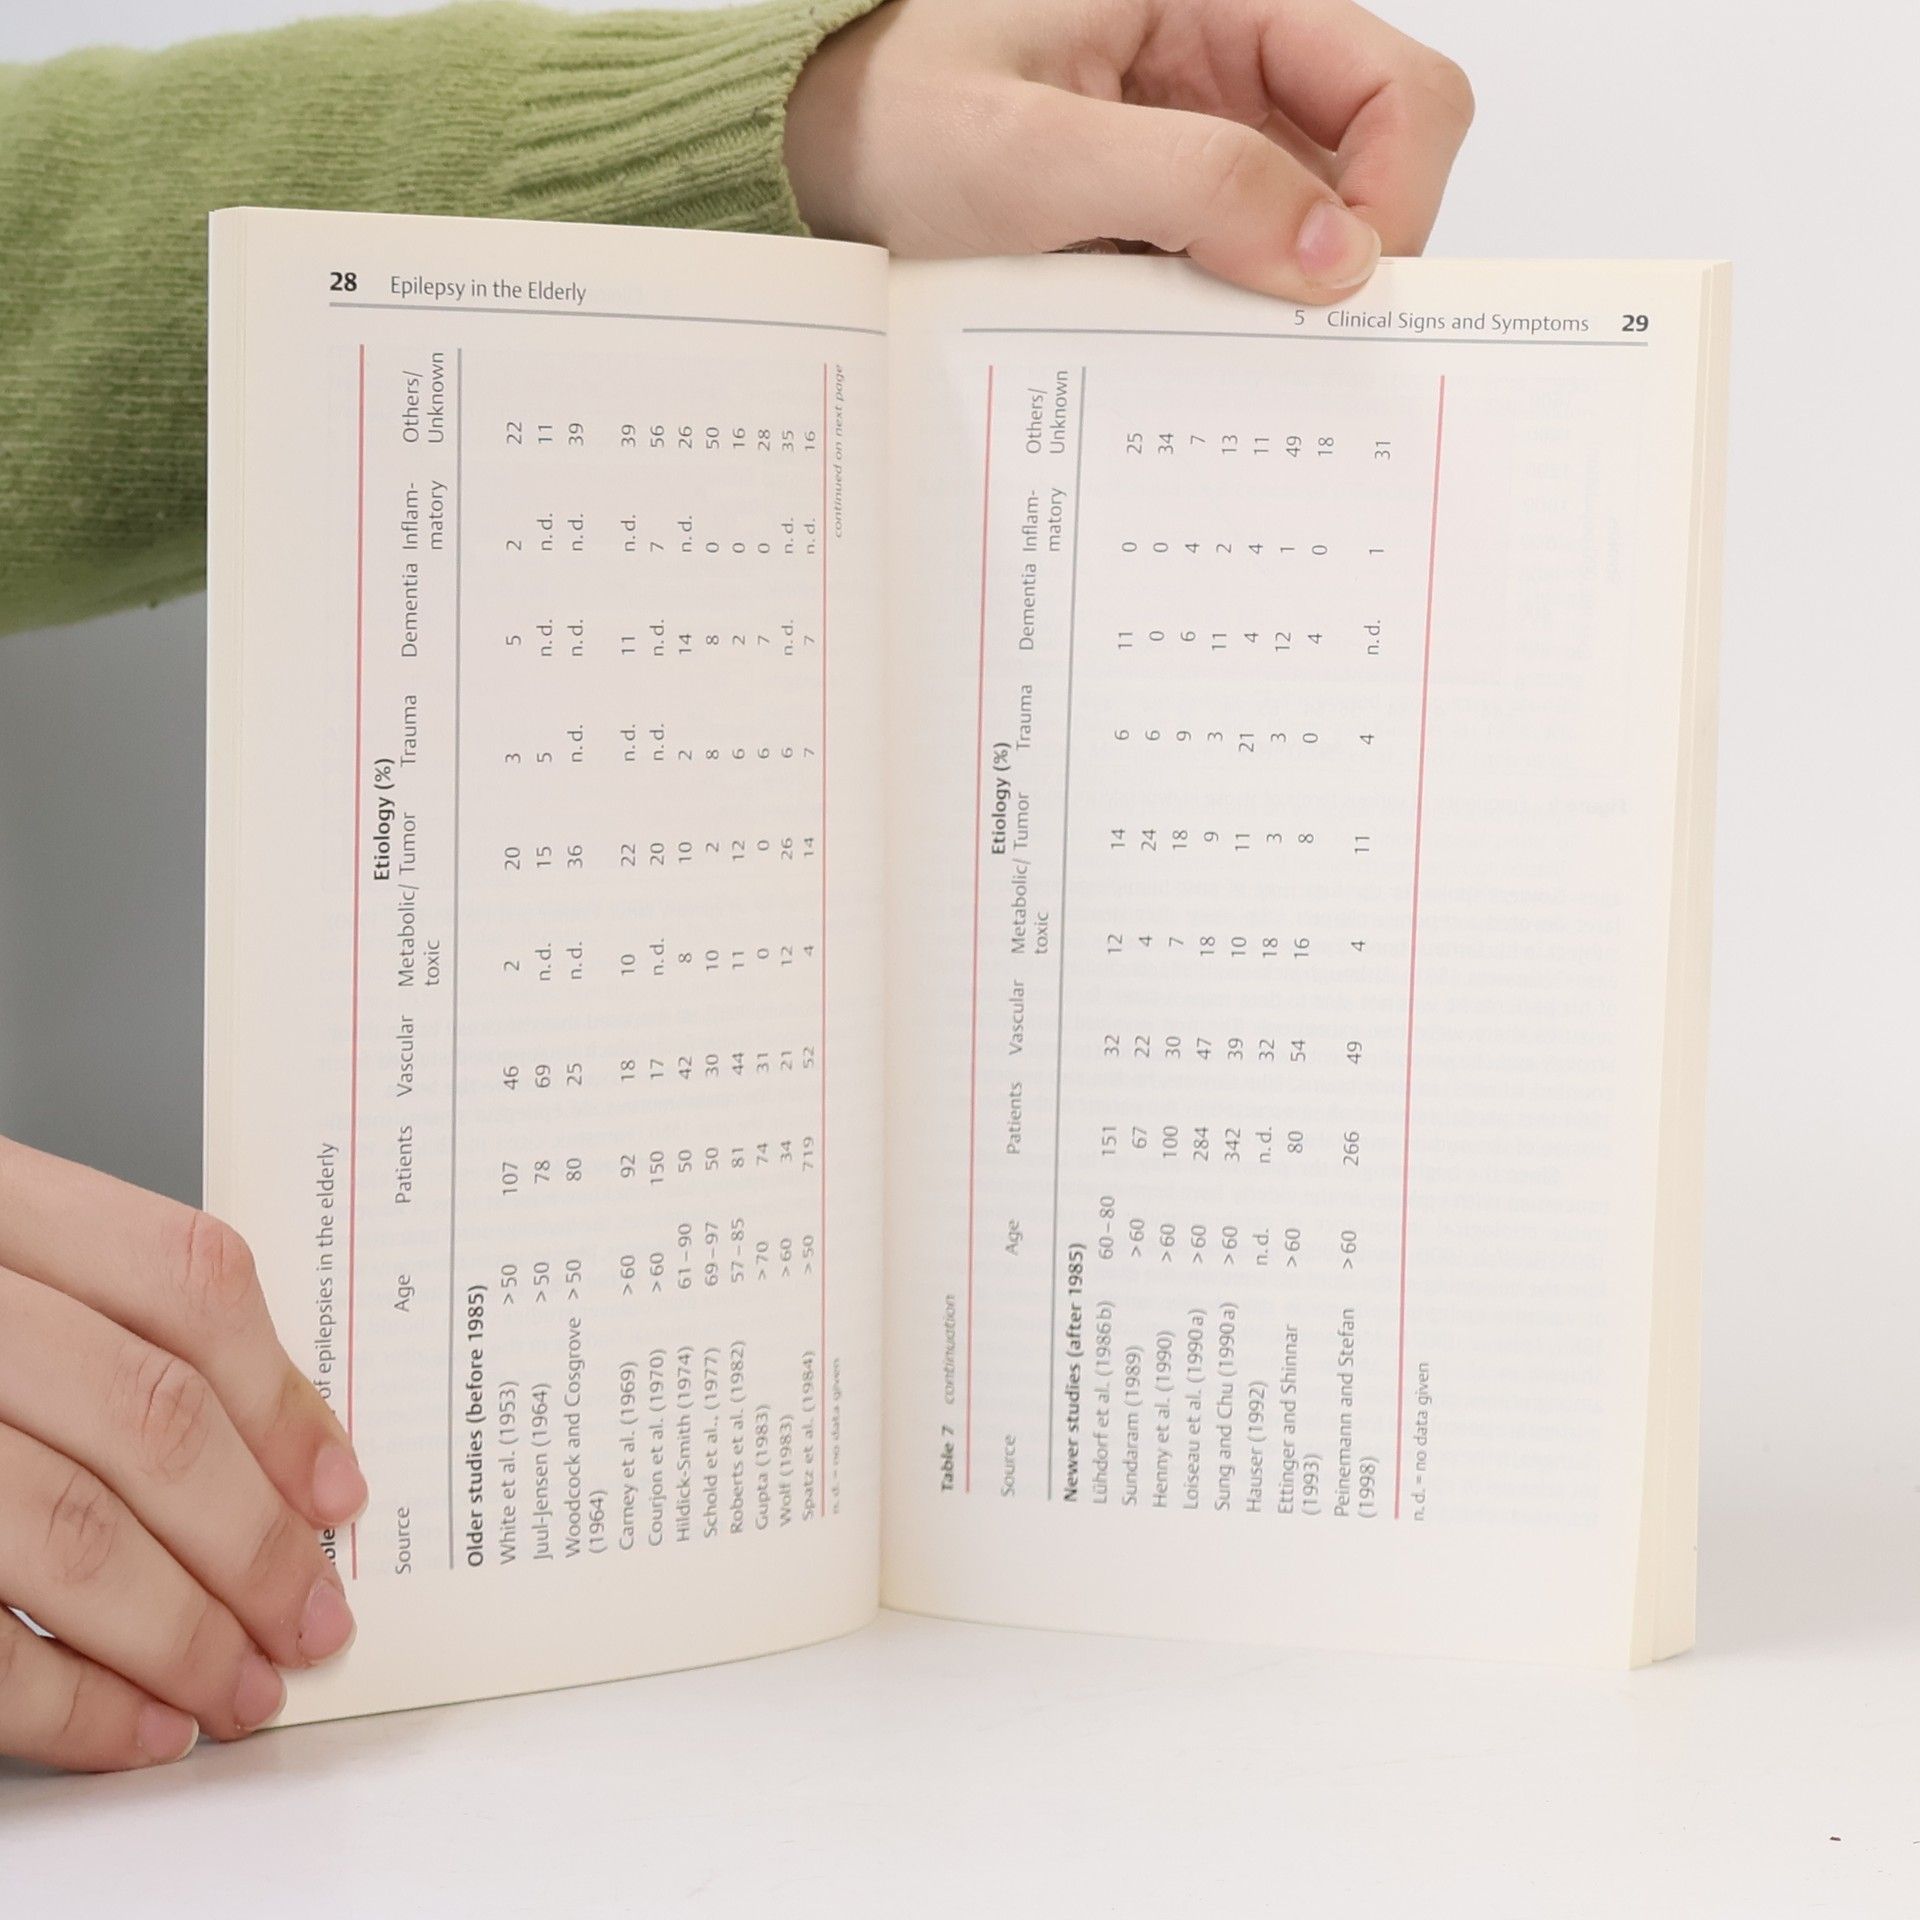 28 Epilepsy in the Elderly
of epilepsies in the elderly
Etiology (%)
Source Age Patients Vascular Metabolic/ Tumor Trauma Dementia Inflam- Others/
toxic matory Unknown
Older studies (before 1985)
White et al. (1953) >50 107 46 2 20 3 5 2 22
Juul-Jensen (1964) >50 78 69 n.d. 15 5 n.d. n.d. 11
Woodcock and Cosgrove >50 80 25 n.d. 36 n.d. n.d. n.d. 39
(1964)
Carney et al. (1969) >60 92 18 10 22 n.d. 11 n.d. 39
Courjon et al. (1970) >60 150 17 n.d. 20 n.d. n.d. 7 56
Hildick-Smith (1974) 61–90 50 42 8 10 2 14 n.d. 26
Schold et al., (1977) 69–97 50 30 10 2 8 8 0 50
Roberts et al. (1982) 57–85 81 44 11 12 6 2 0 16
Gupta (1983) >70 74 31 0 0 6 7 0 28
Wolf (1983) >60 34 21 12 26 6 n.d. n.d. 35
Spatz et al. (1984) >50 719 52 4 14 7 7 n.d. 16
n. d. = no data given continued on next page
5 Clinical Signs and Symptoms 29
Table 7 continuation
Etiology (%)
Source Age Patients Vascular Metabolic/ Tumor Trauma Dementia Inflam- Others/
toxic matory Unknown
Newer studies (after 1985)
Lühdorf et al. (1986b) 60–80 151 32 12 14 6 11 0 25
Sundaram (1989) >60 67 22 4 24 6 0 0 34
Henny et al. (1990) >60 100 30 7 18 9 6 4 7
Loiseau et al. (1990a) >60 284 47 18 9 3 11 2 13
Sung and Chu (1990a) >60 342 39 10 11 21 4 4 11
Hauser (1992) n.d. n.d. 32 18 3 3 12 1 49
Ettinger and Shinnar >60 80 54 16 8 0 4 0 18
(1993)
Peinemann and Stefan >60 266 49 4 11 4 n.d. 1 31
(1998)
n.d. = no data given